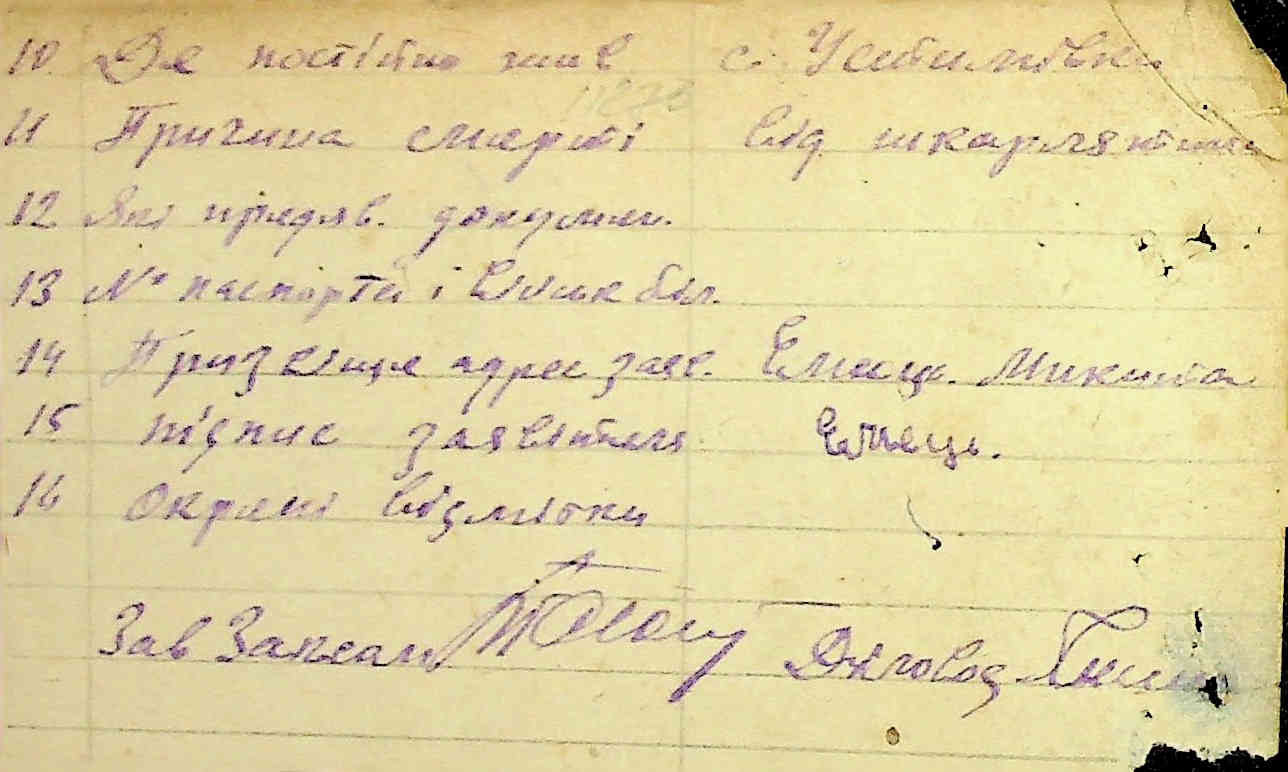 10. Де постійно жив с. Устимівка
11 Причина смерті від шкарлятини
12 Які предяв. докумен.
13 № паспорта і війск біл.
14 Призвіще адрес заяв. Ємець. Микита
15 підпис заявітеля Ємець.
16 Окремі відмітки
Зав Загсам Діловод